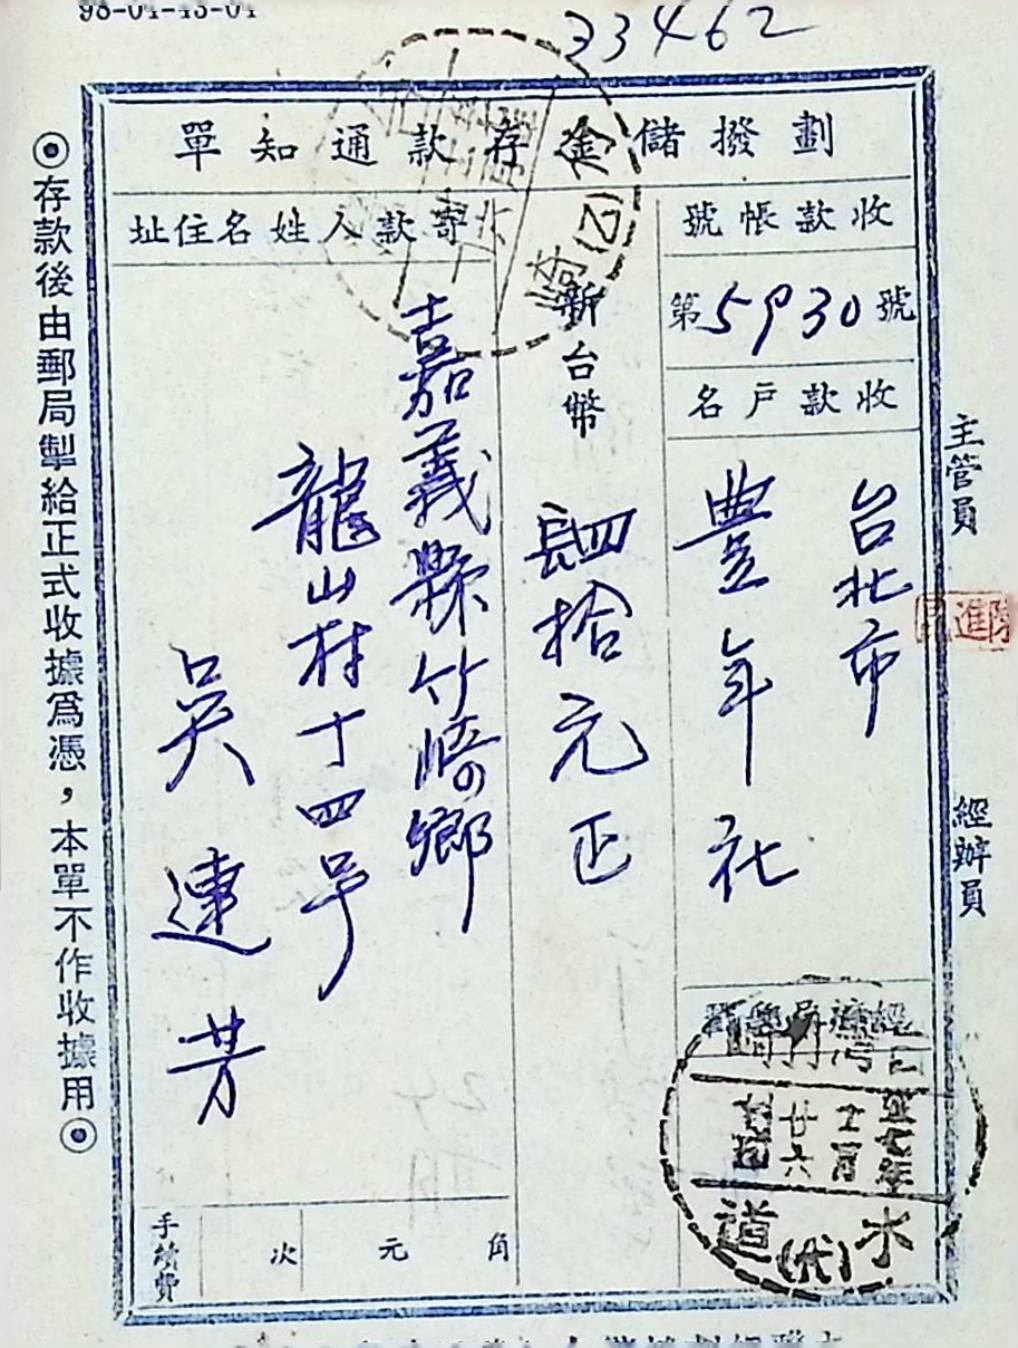 98-04-43-04
33462
劃撥儲金存款通知單
收款帳號
第5930號
收款戶名
台北市
豐年社
新台幣
肆拾元正
寄款人姓名住址
嘉義縣竹崎鄉
龍山村十四号
吳連芳
手續費
次
元
角
主管員
經辦員
◉存款後由郵局掣給正式收據為憑，本單不作收據用◉
崎(乙)
五七年
十二月
廿六
水(代)道